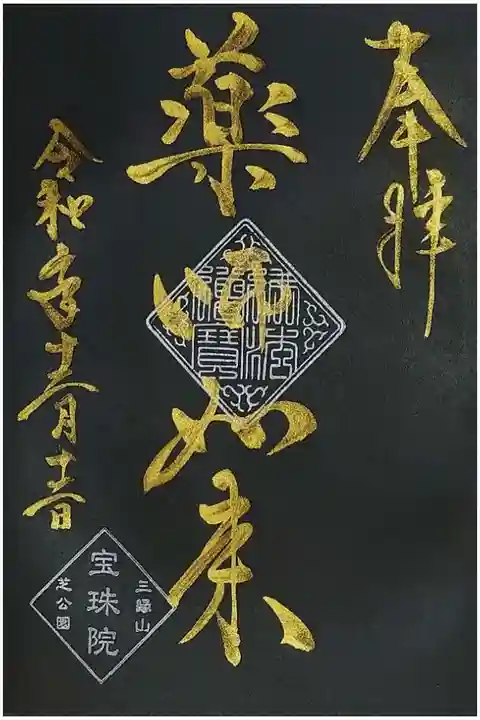 奉拝
薬師如来
佛法
僧寶
令和 年 月 日
三縁山
宝珠院
芝公園